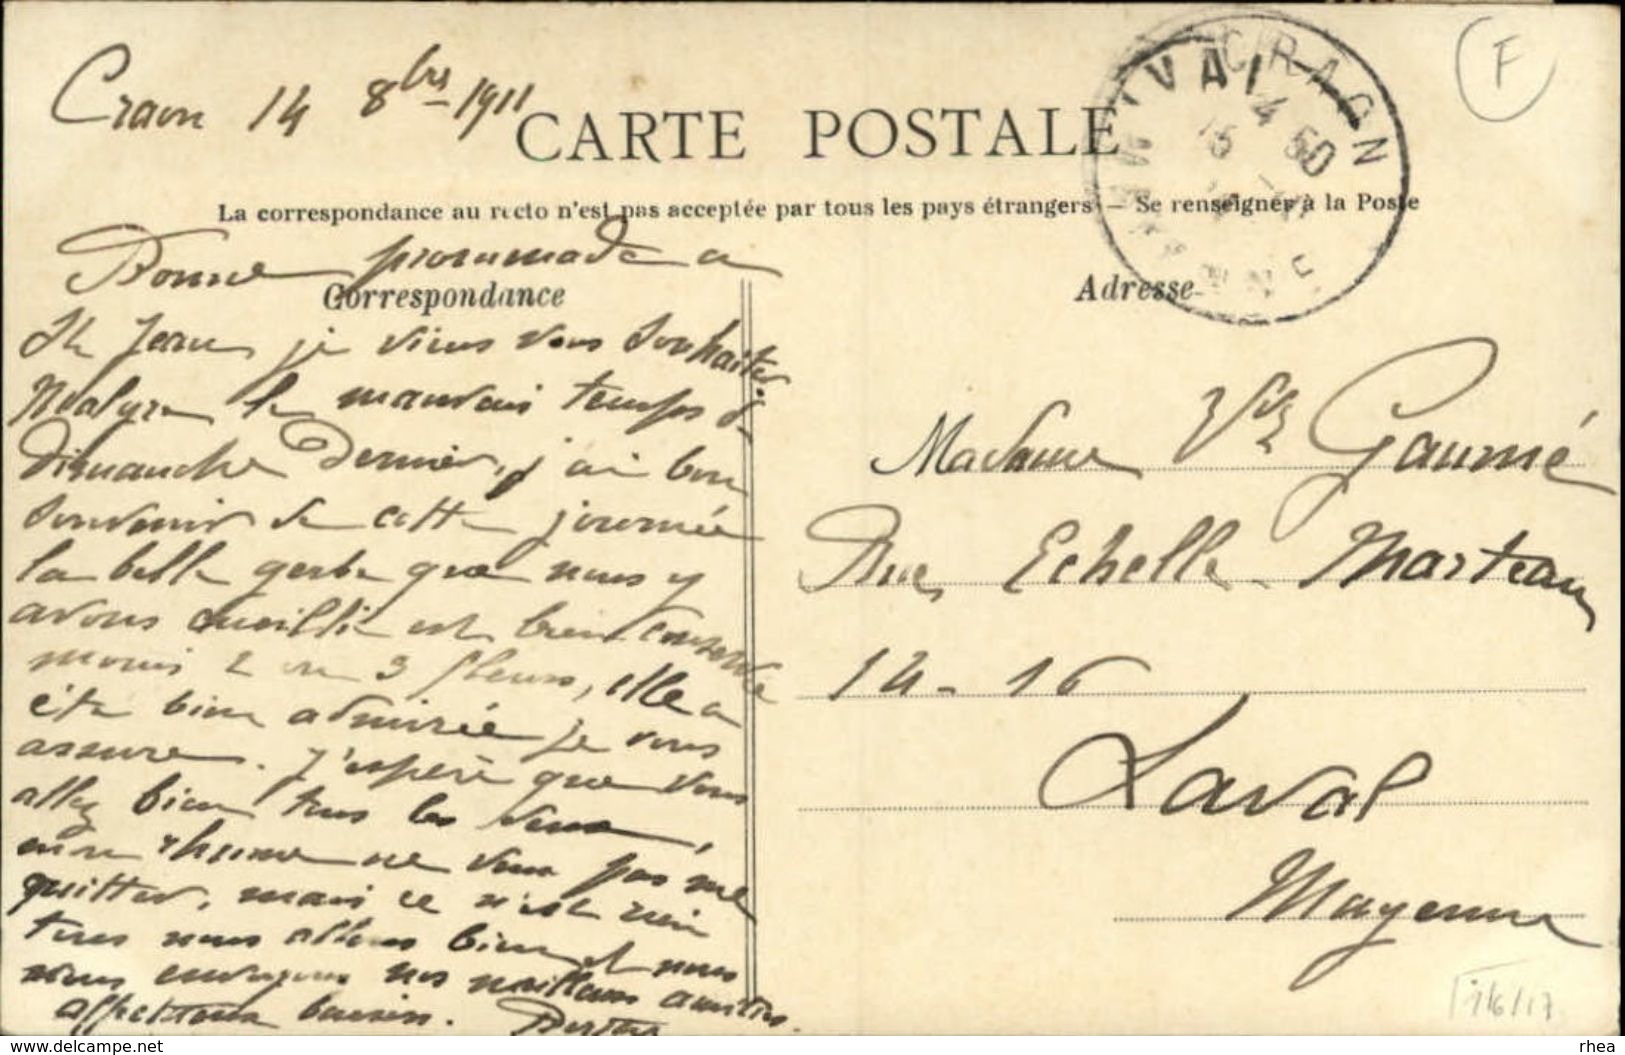 Craon 14 8bre 1911
F
CARTE POSTALE
La correspondance au recto n'est pas acceptée par tous les pays étrangers — Se renseigner à la Poste
CRAON
14 50
Correspondance
Adresse
Bonne promenade a
St Jean je viens vous souhaiter.
Malgré le mauvais temps de
dimanche dernier, j'ai bon
souvenir de cette journée
la belle gerbe que nous y
avons cueillie est bien conservée
moins 2 ou 3 fleurs, elle a
été bien admirée je vous
assure. J'espère que vous
allez bien tous les deux,
mon rhume ne veux pas me
quitter, mais ce n'est rien
tous nous allons bien et nous
vous envoyons nos meilleurs amitiés
affectueux baisers. Berthe
Madame Vve Gaumé
Rue Echelle Marteau
14-16
Laval
Mayenne
rhea